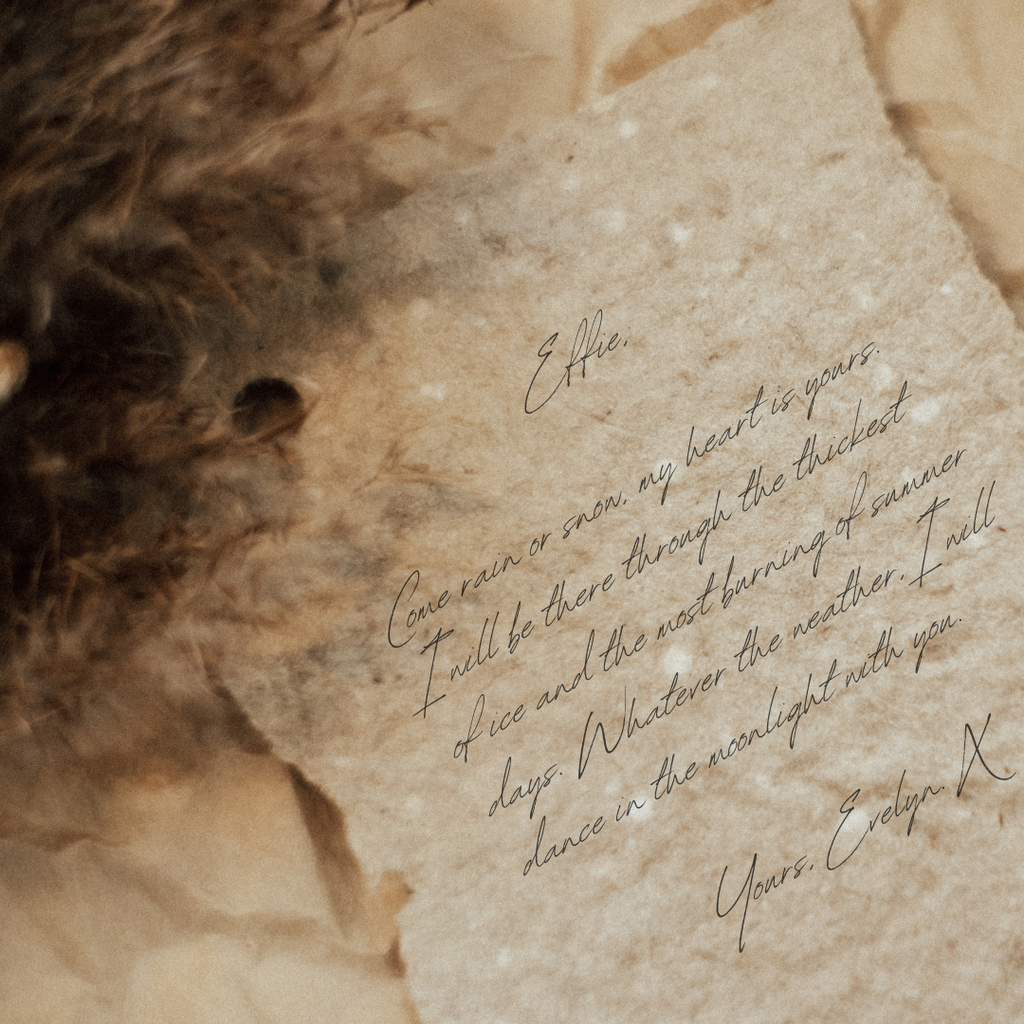 Effie,
Come rain or snow, my heart is yours.
I will be there through the thickest
of ice and the most burning of summer
days. Whatever the weather, I will
dance in the moonlight with you.
Yours, Evelyn. X